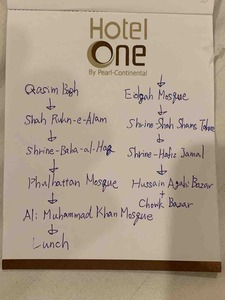 Hotel
One
By Pearl-Continental
Qasim Bagh
Shah Rukn-e-Alam
Shrine-Baha-al-Haq
Phulhattan Mosque
Al: Muhammad Khan Mosque
Lunch
Eidgah Mosque
Shrine-Shah Shams Tabrez
Shrine-Hafiz Jamal
Hussain Agahi Bazar
+
Chowk Bazar